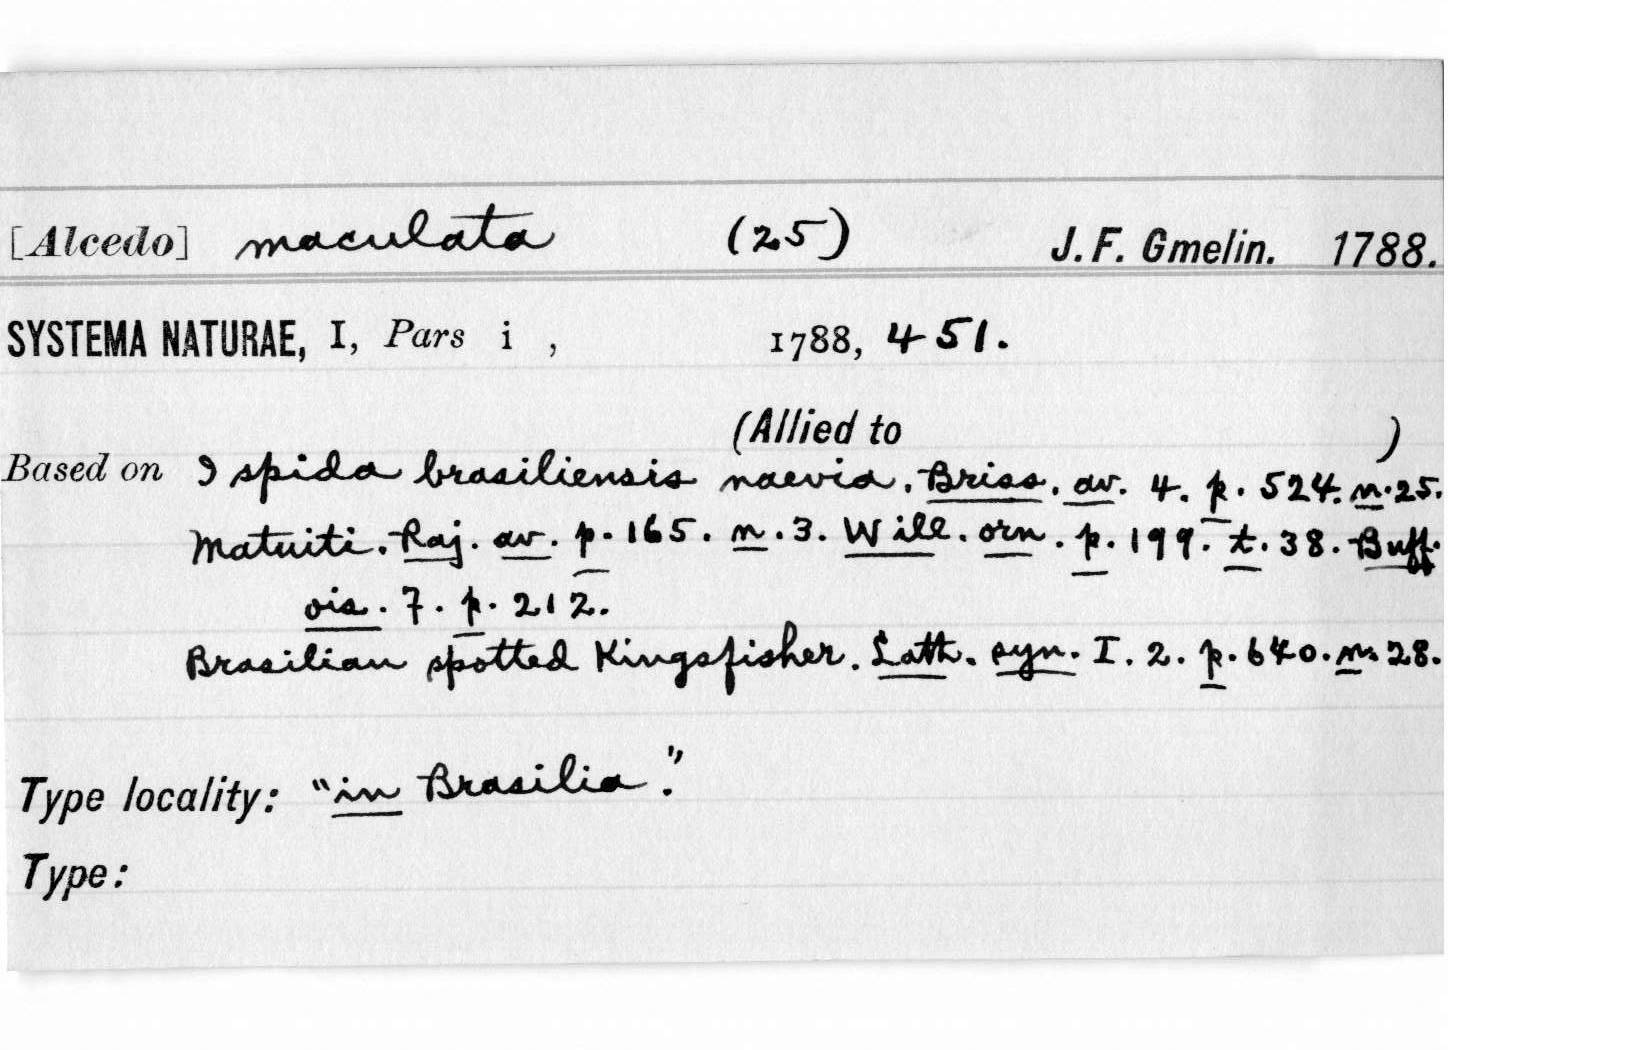 [Alcedo] maculata (25) J. F. Gmelin. 1788.
SYSTEMA NATURAE, I, Pars i , 1788, 451.
(Allied to )
Based on Ispida brasiliensis naevia. Briss. av. 4. p. 524. n. 25.
Matuiti. Raj. av. p. 165. n. 3. Will. orn. p. 199. t. 38. Buff.
ois. 7. p. 212.
Brasilian spotted Kingsfisher. Lath. syn. I. 2. p. 640. n. 28.
Type locality: "in Brasilia."
Type: